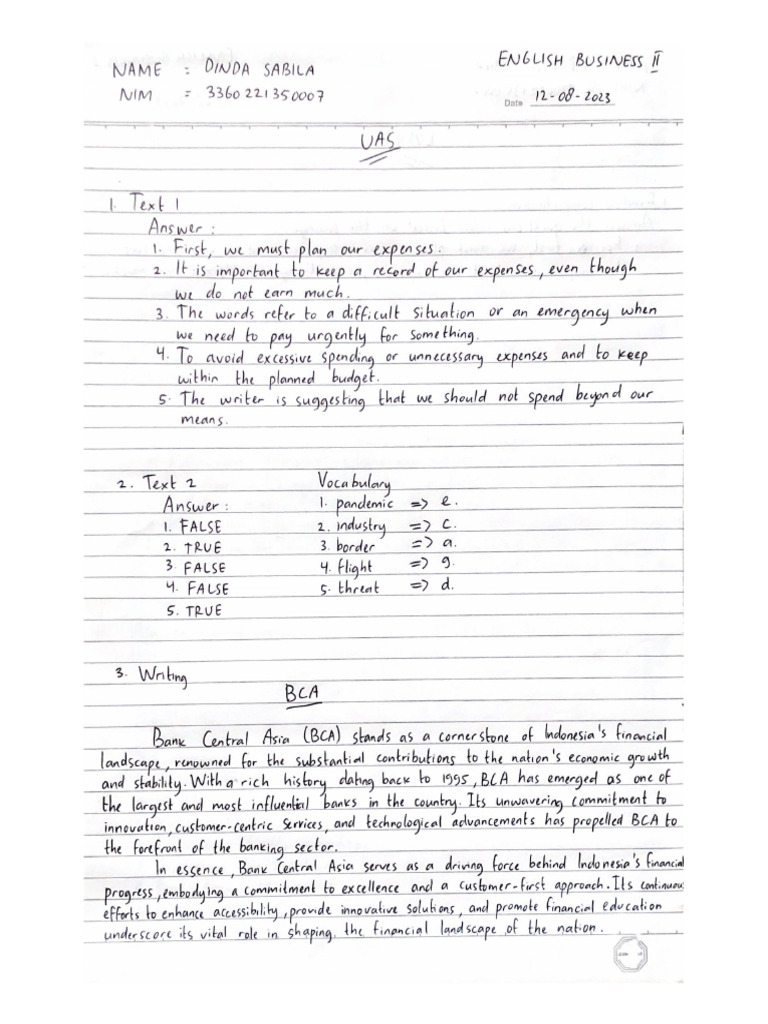 NAME : DINDA SABILA
ENGLISH BUSINESS II
NIM = 3360221350007
Date 12-08-2023
UAS
1. Text 1
Answer :
1. First, we must plan our expenses.
2. It is important to keep a record of our expenses, even though
we do not earn much.
3. The words refer to a difficult situation or an emergency when
we need to pay urgently for something.
4. To avoid excessive spending or unnecessary expenses and to keep
within the planned budget.
5. The writer is suggesting that we should not spend beyond our
means.
2. Text 2 Vocabulary
Answer : 1. pandemic => e.
1. FALSE 2. industry => c.
2. TRUE 3. border => a.
3 FALSE 4. flight => g.
4. FALSE 5. threat => d.
5. TRUE
3. Writing
BCA
Bank Central Asia (BCA) stands as a cornerstone of Indonesia's financial
landscape, renowned for the substantial contributions to the nation's economic growth
and stability. With a rich history dating back to 1995, BCA has emerged as one of
the largest and most influential banks in the country. Its unwavering commitment to
innovation, customer-centric services, and technological advancements has propelled BCA to
the forefront of the banking sector.
In essence, Bank Central Asia serves as a driving force behind Indonesia's financial
progress, embodying a commitment to excellence and a customer-first approach. Its continuous
efforts to enhance accessibility, provide innovative solutions, and promote financial education
underscore its vital role in shaping. the financial landscape of the nation.